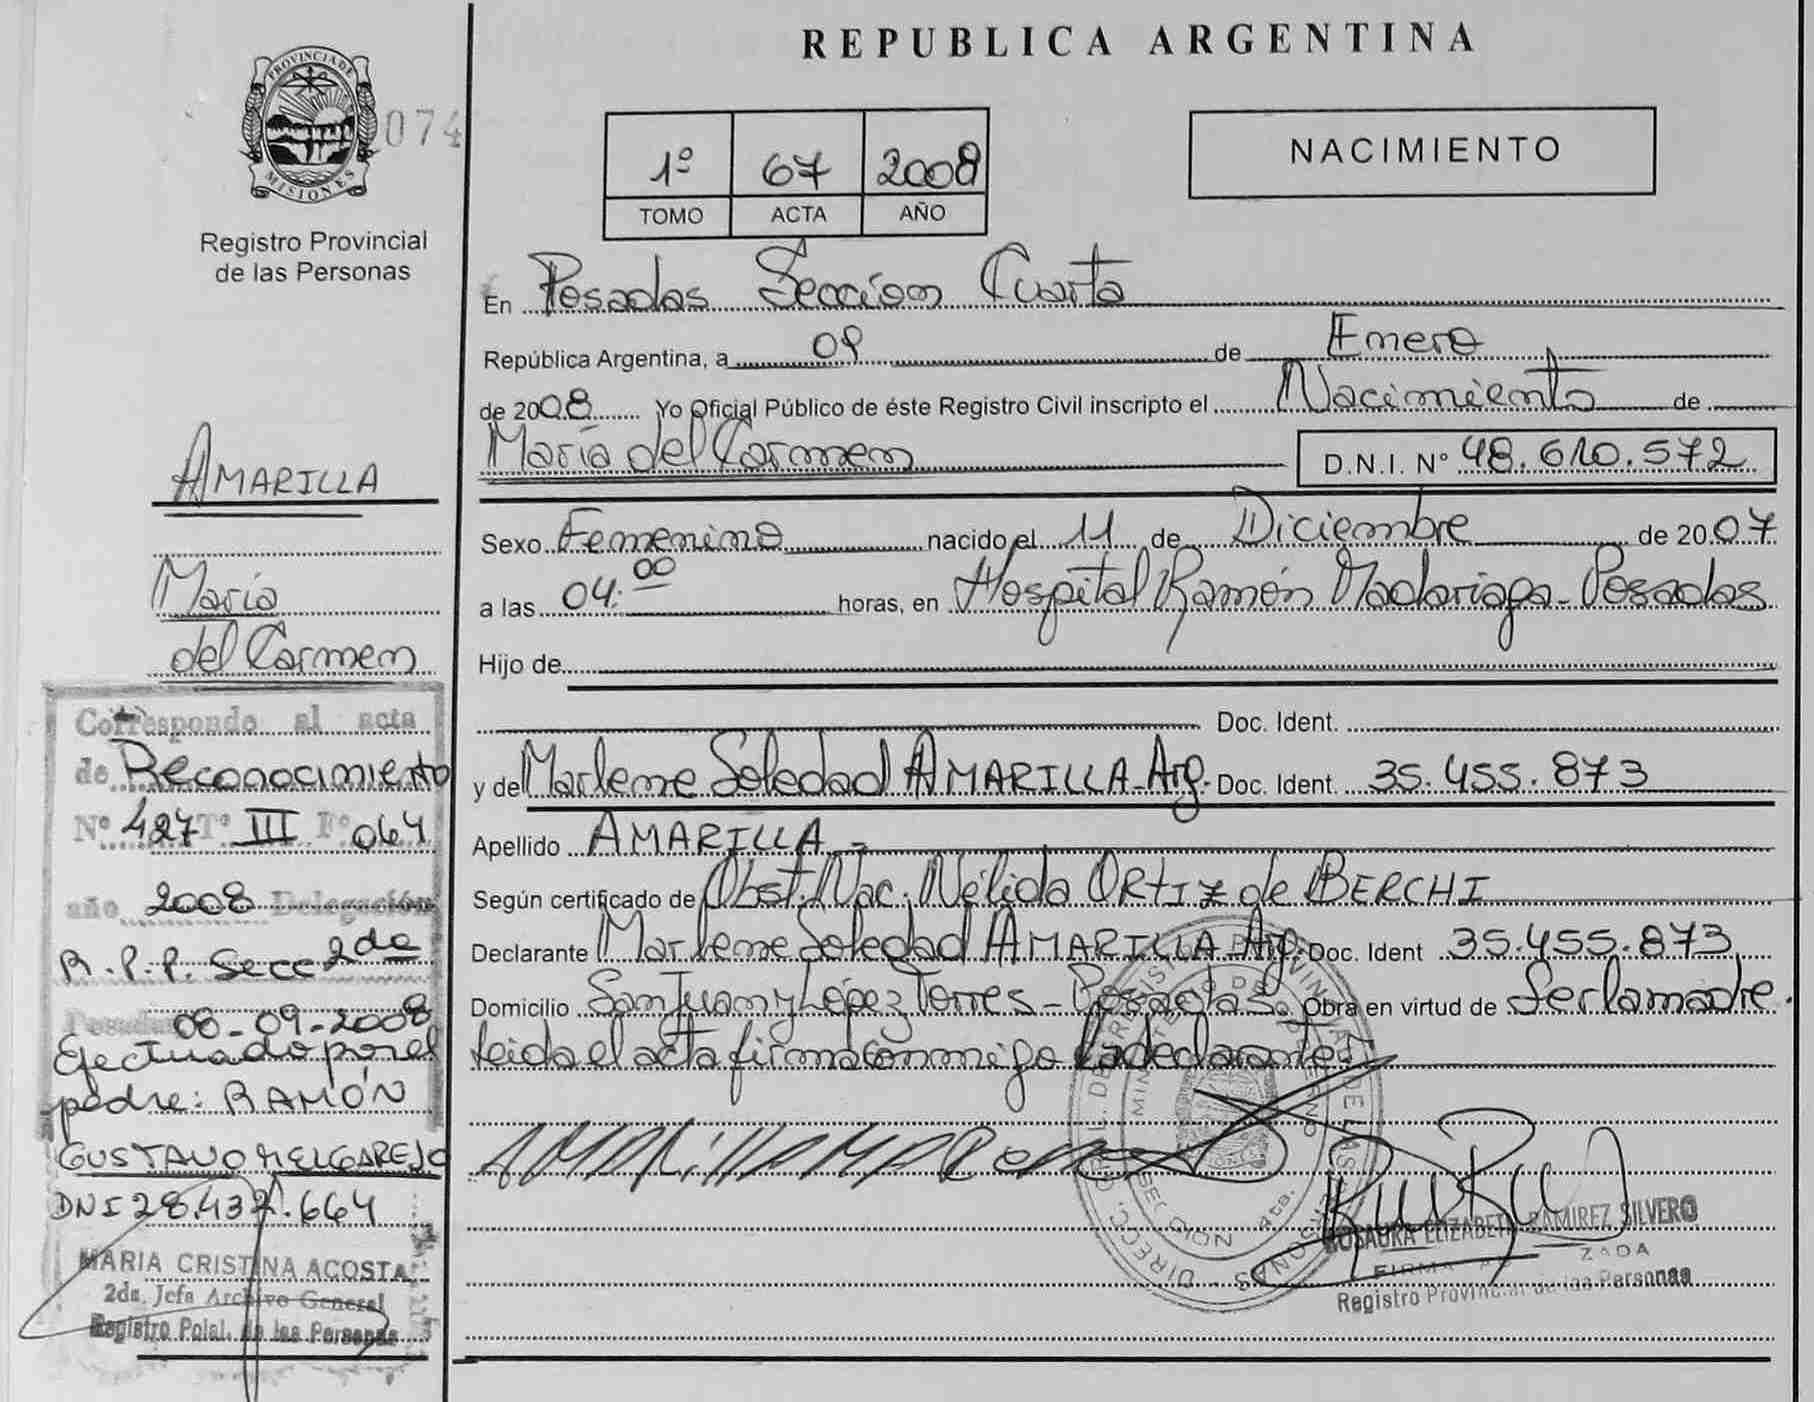 REPUBLICA ARGENTINA
PROVINCIA DE
MISIONES
074
Registro Provincial
de las Personas
1º 67 2008
TOMO ACTA AÑO
NACIMIENTO
En Posadas Sección Cuarta
República Argentina, a 09 de Enero
de 2008 Yo Oficial Público de éste Registro Civil inscripto el Nacimiento de
María del Carmen D.N.I. Nº 48.610.572
Sexo Femenino nacido el 11 de Diciembre de 2007
a las 04:00 horas, en Hospital Ramón Madariaga - Posadas
Hijo de
Doc. Ident.
y de Marlene Soledad AMARILLA - Arg. Doc. Ident. 35.455.873
Apellido AMARILLA -
Según certificado de Obst. Nac. Nélida ORTIZ de BERCHI
Declarante Marlene Soledad AMARILLA Arg. Doc. Ident 35.455.873
Domicilio San Juan y López Torres - Posadas. Obra en virtud de Ser la madre.
leida el acta firma conmigo la declarante
ROSAURA ELIZABETH RAMIREZ SILVERO
FIRMA
Registro Provincial de las Personas
AMARILLA
María
del Carmen
Correspondo al acta
de Reconocimiento
Nº 427 Tº III Fº 064
año 2008 Delegación
R.P.P. Secc 2da
Posadas 08-09-2008
Efectuado por el
padre: RAMÓN
GUSTAVO MELGAREJO
DNI 28.437.664
MARIA CRISTINA ACOSTA
2da. Jefa Archivo General
Registro Pcial. de las Personas